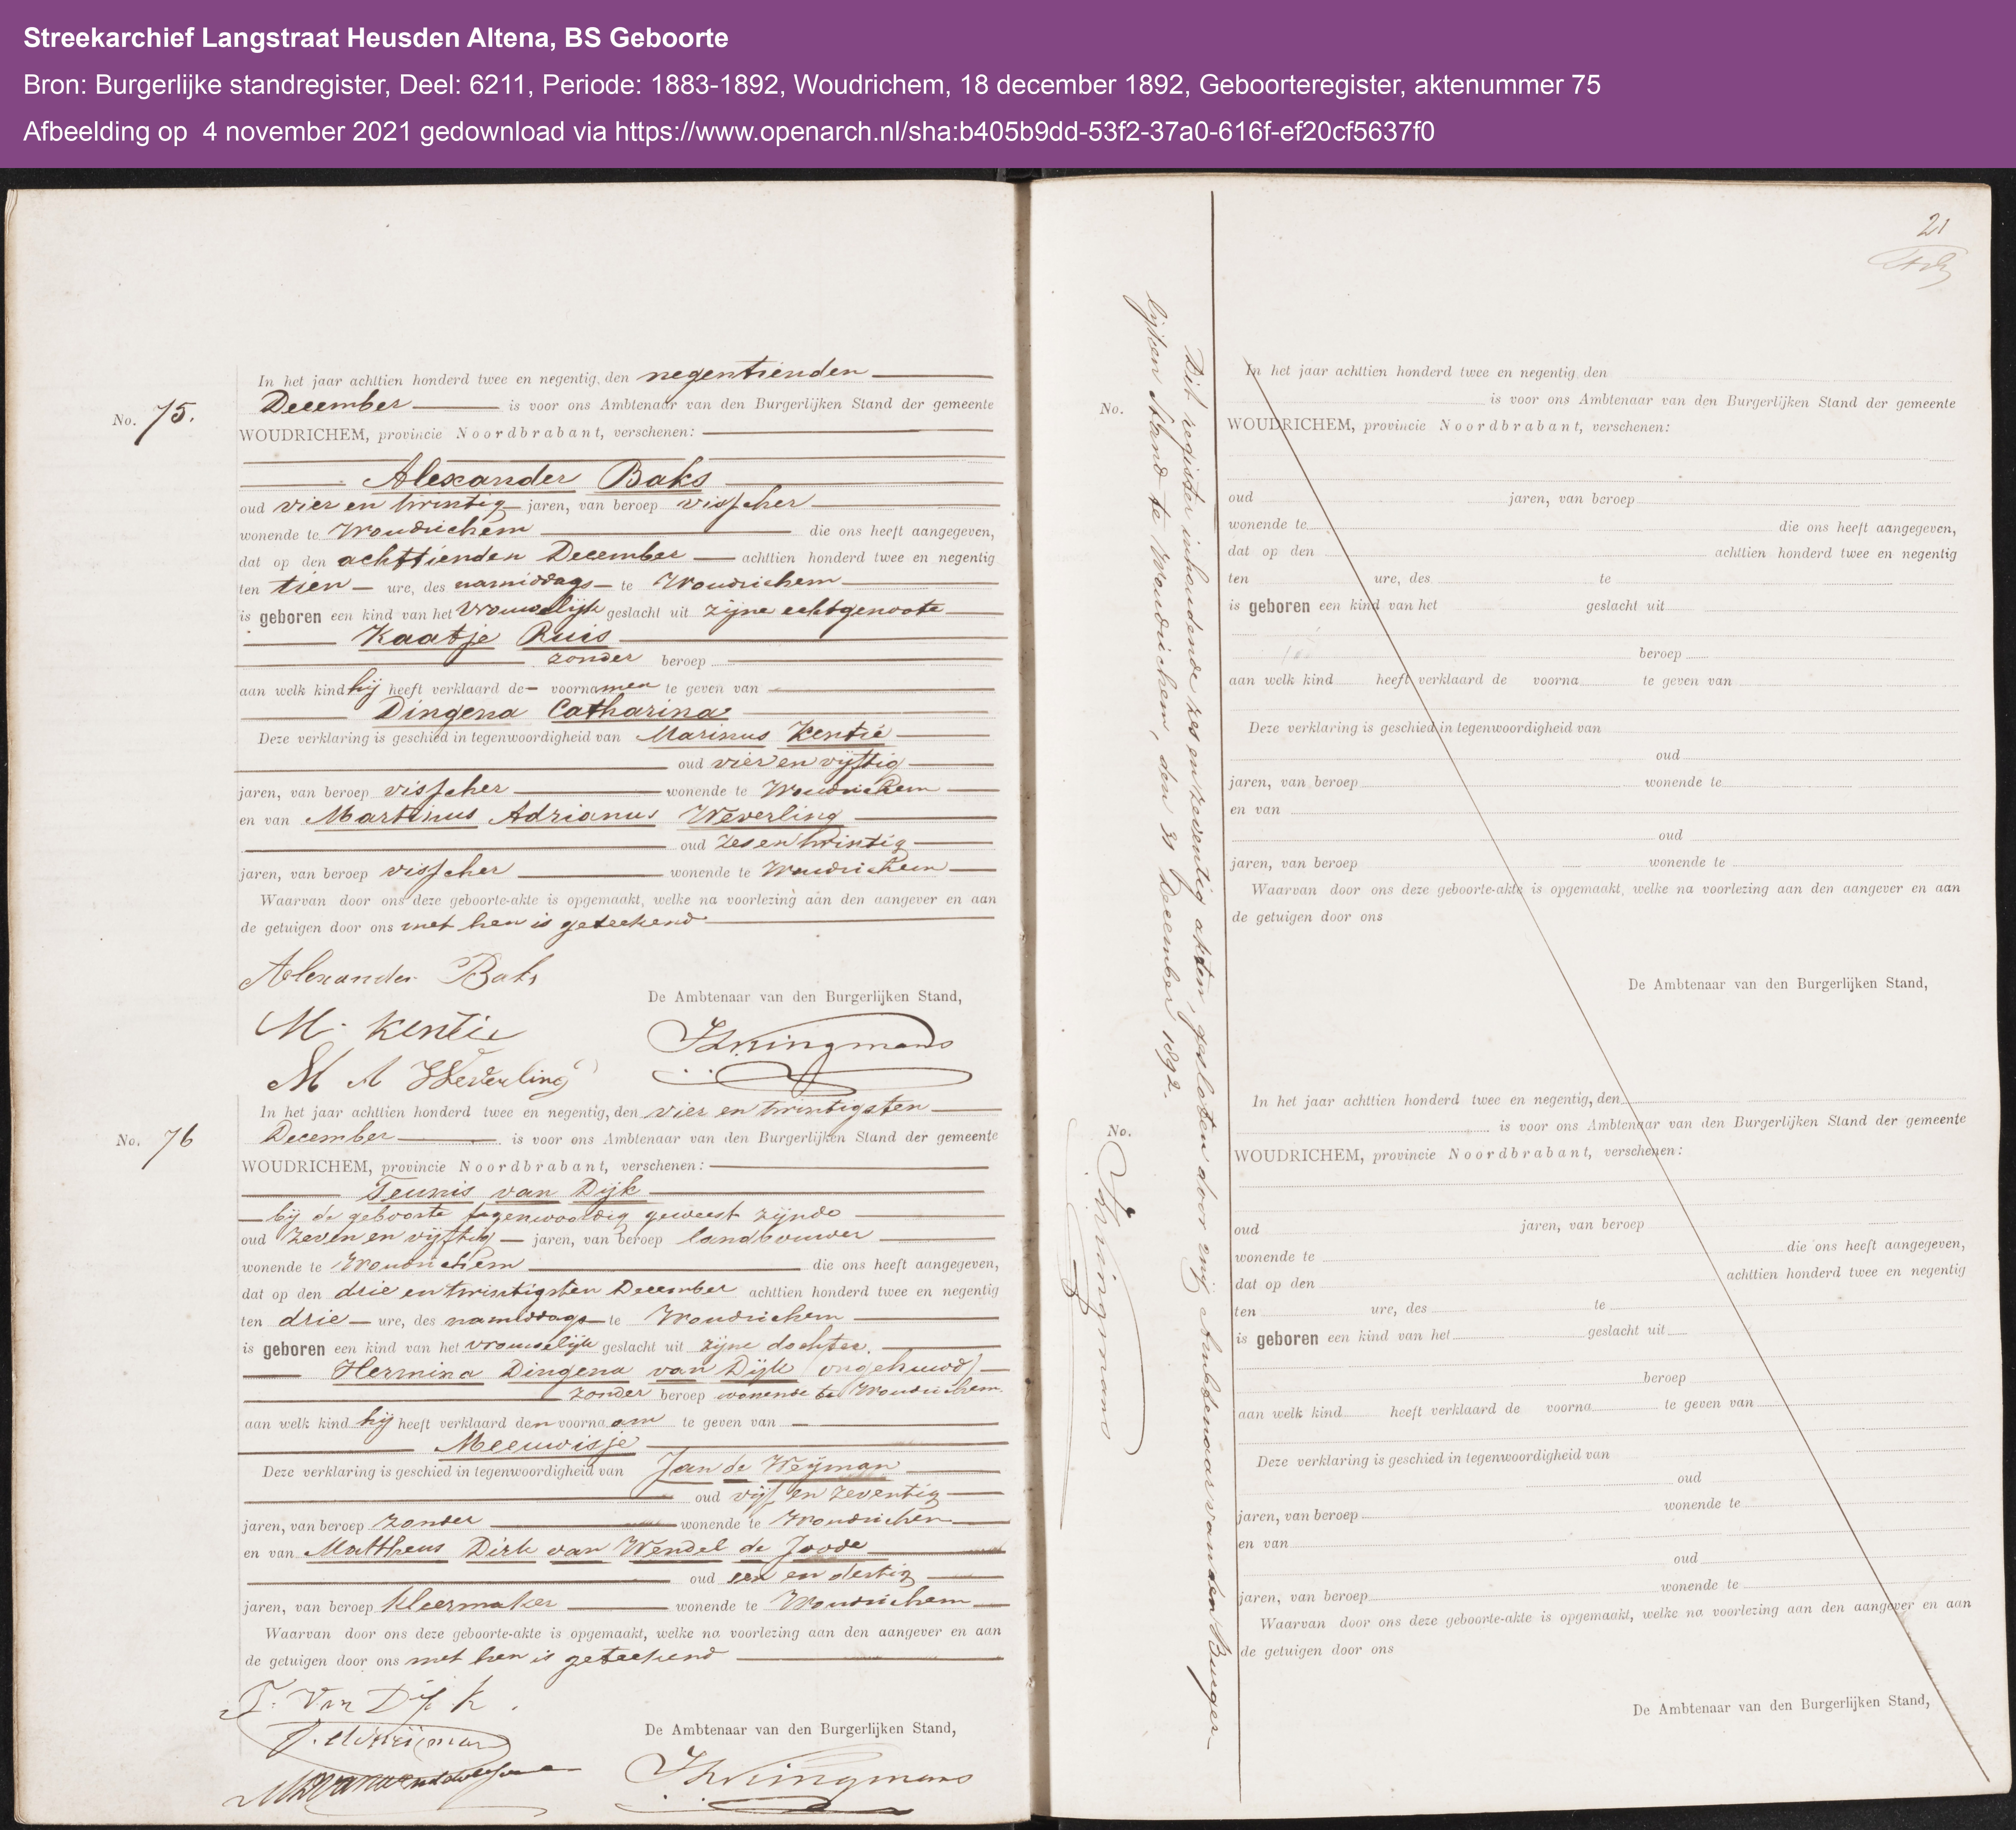 Streekarchief Langstraat Heusden Altena, BS Geboorte
Bron: Burgerlijke standregister, Deel: 6211, Periode: 1883-1892, Woudrichem, 18 december 1892, Geboorteregister, aktenummer 75
Afbeelding op 4 november 2021 gedownload via https://www.openarch.nl/sha:b405b9dd-53f2-37a0-616f-ef20cf5637f0
No. 75.
In het jaar achttien honderd twee en negentig, den negentienden
December is voor ons Ambtenaar van den Burgerlijken Stand der gemeente
WOUDRICHEM, provincie Noordbrabant, verschenen:
Alexander Baks
oud vier en twintig jaren, van beroep visscher
wonende te Woudrichem die ons heeft aangegeven,
dat op den achttienden December achttien honderd twee en negentig
ten tien ure, des namiddags te Woudrichem
is geboren een kind van het vrouwelijk geslacht uit zijne echtgenoote
Kaatje Ruis
zonder beroep
aan welk kind hij heeft verklaard de voornamen te geven van
Dingena Catharina
Deze verklaring is geschied in tegenwoordigheid van Marinus Kentie
oud vier en vijftig
jaren, van beroep visscher wonende te Woudrichem
en van Martinus Adrianus Weverling
oud zes en twintig
jaren, van beroep visscher wonende te Woudrichem
Waarvan door ons deze geboorte-akte is opgemaakt, welke na voorlezing aan den aangever en aan
de getuigen door ons met hen is geteekend
Alexander Baks
De Ambtenaar van den Burgerlijken Stand,
M. Kentie
M A Weverling
No. 76
In het jaar achttien honderd twee en negentig, den vier en twintigsten
December is voor ons Ambtenaar van den Burgerlijken Stand der gemeente
WOUDRICHEM, provincie Noordbrabant, verschenen:
Teunis van Dijk
bij de geboorte tegenwoordig geweest zijnde
oud zeven en vijftig jaren, van beroep landbouwer
wonende te Woudrichem die ons heeft aangegeven,
dat op den drie en twintigsten December achttien honderd twee en negentig
ten drie ure, des namiddags te Woudrichem
is geboren een kind van het vrouwelijk geslacht uit zijne dochter,
Hermina Dingena van Dijk (ongehuwd)
zonder beroep wonende te Woudrichem
aan welk kind hij heeft verklaard den voornaam te geven van
Meeuwisje
Deze verklaring is geschied in tegenwoordigheid van Jan de Weijman
oud vijf en zeventig
jaren, van beroep zonder wonende te Woudrichem
en van Mattheus Dirk van Wendel de Joode
oud een en dertig
jaren, van beroep kleermaker wonende te Woudrichem
Waarvan door ons deze geboorte-akte is opgemaakt, welke na voorlezing aan den aangever en aan
de getuigen door ons met hen is geteekend
T. Van Dijk.
De Ambtenaar van den Burgerlijken Stand,
21
Dit register inhoudende zes en zeventig akten, gesloten door mij Ambtenaar van den Burger-
lijken Stand te Woudrichem, den 31 December 1892.
No.
In het jaar achttien honderd twee en negentig, den
is voor ons Ambtenaar van den Burgerlijken Stand der gemeente
WOUDRICHEM, provincie Noordbrabant, verschenen:
oud jaren, van beroep
wonende te die ons heeft aangegeven,
dat op den achttien honderd twee en negentig
ten ure, des te
is geboren een kind van het geslacht uit
beroep
aan welk kind heeft verklaard de voorna te geven van
Deze verklaring is geschied in tegenwoordigheid van
oud
jaren, van beroep wonende te
en van
oud
jaren, van beroep wonende te
Waarvan door ons deze geboorte-akte is opgemaakt, welke na voorlezing aan den aangever en aan
de getuigen door ons
De Ambtenaar van den Burgerlijken Stand,
No.
In het jaar achttien honderd twee en negentig, den
is voor ons Ambtenaar van den Burgerlijken Stand der gemeente
WOUDRICHEM, provincie Noordbrabant, verschenen:
oud jaren, van beroep
wonende te die ons heeft aangegeven,
dat op den achttien honderd twee en negentig
ten ure, des te
is geboren een kind van het geslacht uit
beroep
aan welk kind heeft verklaard de voorna te geven van
Deze verklaring is geschied in tegenwoordigheid van
oud
jaren, van beroep wonende te
en van
oud
jaren, van beroep wonende te
Waarvan door ons deze geboorte-akte is opgemaakt, welke na voorlezing aan den aangever en aan
de getuigen door ons
De Ambtenaar van den Burgerlijken Stand,